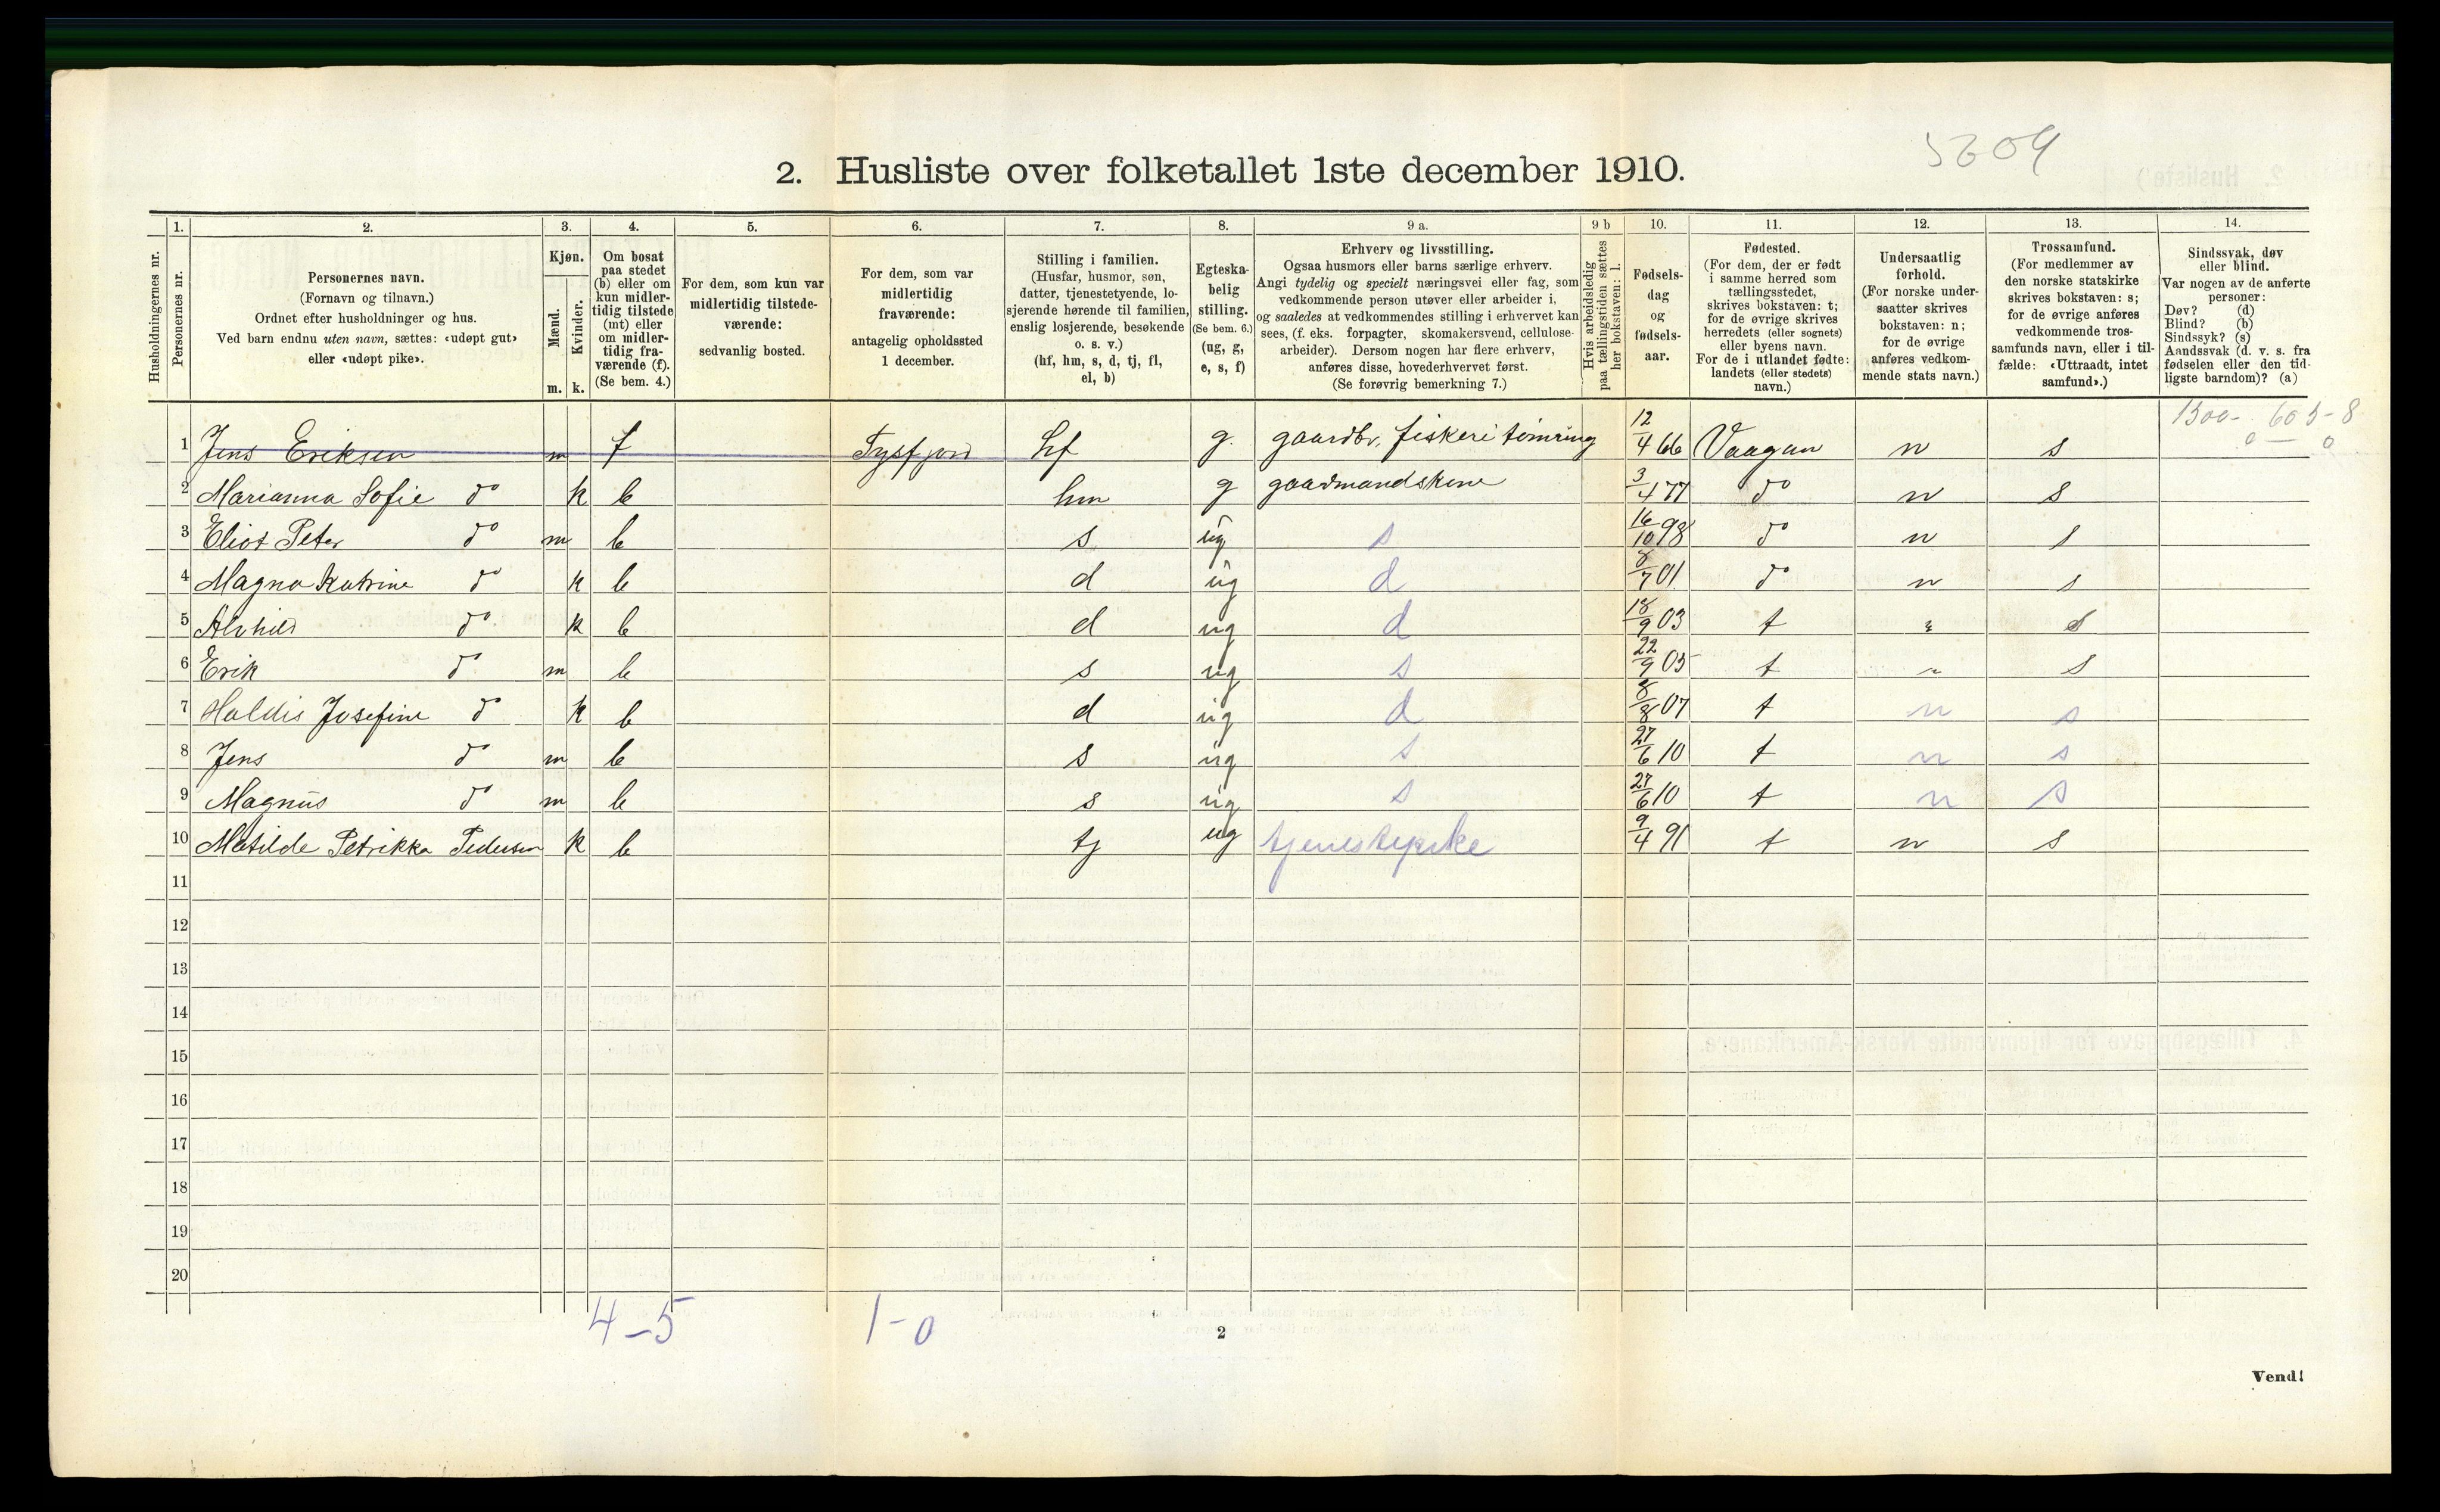 5609
2. Husliste over folketallet 1ste december 1910.
1. 2. 3. 4. 5. 6. 7. 8. 9 a. 9 b 10. 11. 12. 13. 14.
Husholdningernes nr.
Personernes nr.
Personernes navn.
(Fornavn og tilnavn.)
Ordnet efter husholdninger og hus.
Ved barn endnu uten navn, sættes: «udøpt gut»
eller «udøpt pike».
Kjøn.
Mænd.
Kvinder.
m. k.
Om bosat
paa stedet
(b) eller om
kun midler-
tidig tilstede
(mt) eller
om midler-
tidig fra-
værende (f).
(Se bem. 4.)
For dem, som kun var
midlertidig tilstede-
værende:
sedvanlig bosted.
For dem, som var
midlertidig
fraværende:
antagelig opholdssted
1 december.
Stilling i familien.
(Husfar, husmor, søn,
datter, tjenestetyende, lo-
sjerende hørende til familien,
enslig losjerende, besøkende
o. s. v.)
(hf, hm, s, d, tj, fl,
el, b)
Egteska-
belig
stilling.
(Se bem. 6.)
(ug, g,
e, s, f)
Erhverv og livsstilling.
Ogsaa husmors eller barns særlige erhverv.
Angi tydelig og specielt næringsvei eller fag, som
vedkommende person utøver eller arbeider i,
og saaledes at vedkommendes stilling i erhvervet kan
sees, (f. eks. forpagter, skomakersvend, cellulose-
arbeider). Dersom nogen har flere erhverv,
anføres disse, hovederhvervet først.
(Se forøvrig bemerkning 7.)
Hvis arbeidsledig
paa tællingstiden sættes
her bokstaven: l.
Fødsels-
dag
og
fødsels-
aar.
Fødested.
(For dem, der er født
i samme herred som
tællingsstedet,
skrives bokstaven: t;
for de øvrige skrives
herredets (eller sognets)
eller byens navn.
For de i utlandet fødte:
landets (eller stedets)
navn.)
Undersaatlig
forhold.
(For norske under-
saatter skrives
bokstaven: n;
for de øvrige
anføres vedkom-
mende stats navn.)
Trossamfund.
(For medlemmer av
den norske statskirke
skrives bokstaven: s;
for de øvrige anføres
vedkommende tros-
samfunds navn, eller i til-
fælde: «Uttraadt, intet
samfund».)
Sindssvak, døv
eller blind.
Var nogen av de anførte
personer:
Døv? (d)
Blind? (b)
Sindssyk? (s)
Aandssvak (d. v. s. fra
fødselen eller den tid-
ligste barndom)? (a)
1300- 603-8
0 — 0
1 Jens Eriksen m f Tysfjord hf g. gaardbr, fiskeri tømring 12/4 66 Vaagan n s
2 Marianna Sofie do k b hm g gaardmandskone 3/4 77 do n s
3 Eliot Peter do m b s ug s 16/10 98 do n s
4 Magna Katrine do k b d ug d 8/7 01 do n s
5 Alvhild do k b d ug d 18/9 03 t " s
6 Erik do m b s ug s 22/9 05 t " s
7 Haldis Josefine do k b d ug d 8/8 07 t n s
8 Jens do m b s ug s 27/6 10 t n s
9 Magnus do m b s ug s 27/6 10 t n s
10 Matilde Petrikka Pedersen k b tj ug tjenestepike 9/4 91 t n s
11
12
13
14
15
16
17
18
19
20
4-5 1-0
2
Vend!